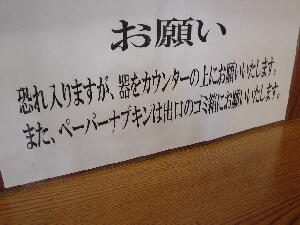 お願い
恐れ入りますが、器をカウンターの上にお願いいたします。
また、ペーパーナプキンは出口のゴミ箱にお願いいたします。